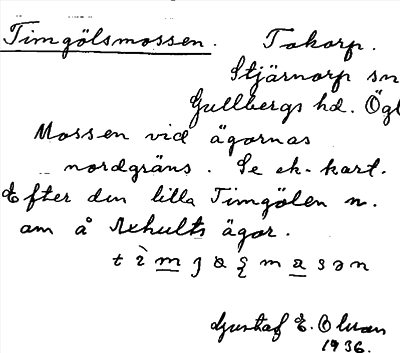 Timgölsmossen. Tokorp.
Stjärnorp sn
Gullbergs hd. Ögl
Mossen vid ägornas
nordgräns. Se ek. kart.
Efter den lilla Timgölen n.
om å Rxhults ägor.
Gustaf E. Olsson
1936.